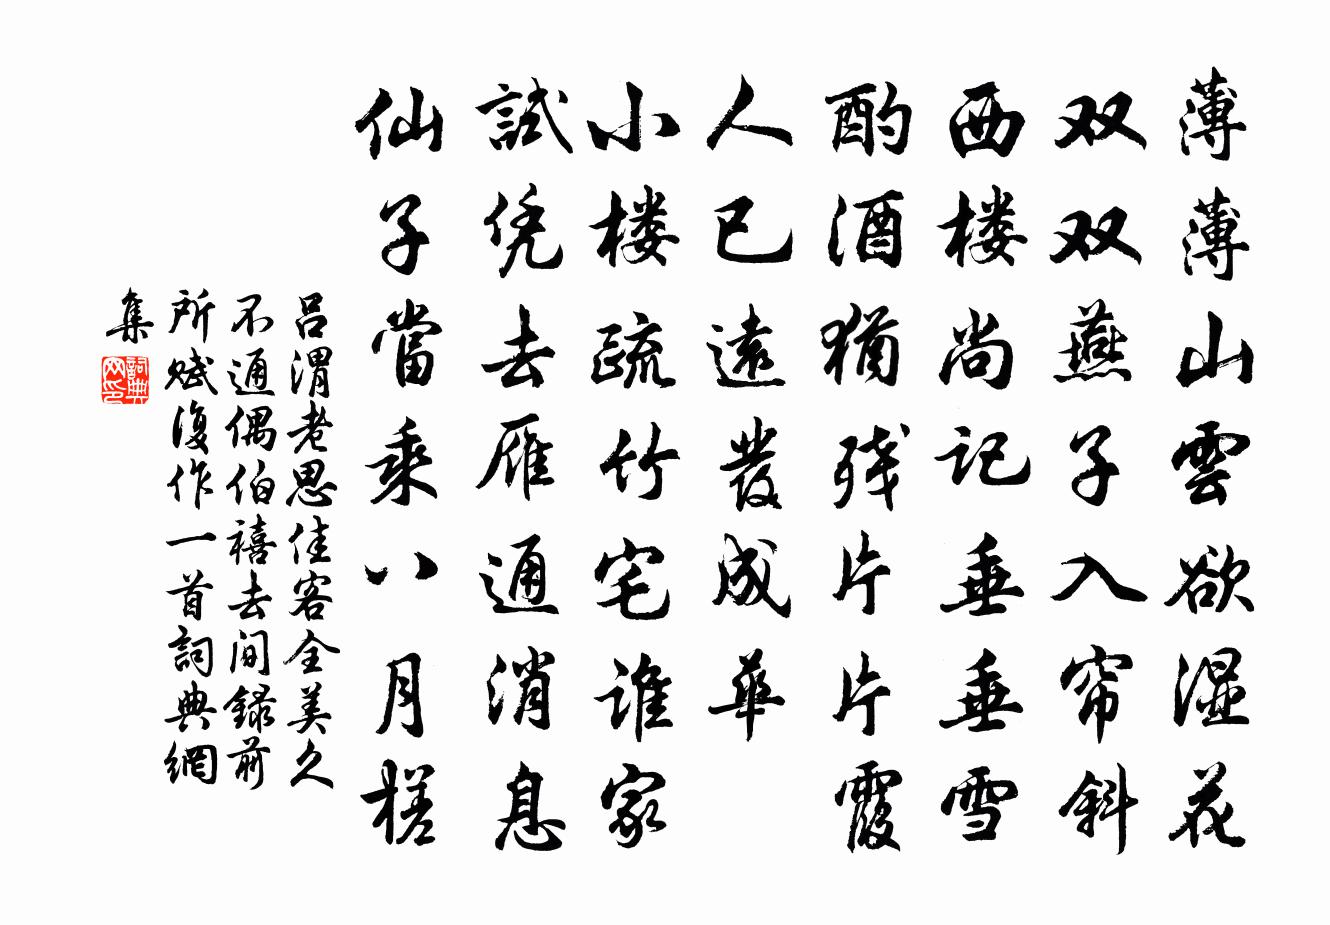 薄薄山雲欲湿花
双双燕子入帘斜
西楼尚记垂垂雪
酌酒猶残片片霞
人已遠發成華
小楼疏竹宅谁家
試凭去雁通消息
仙子當乘八月槎
吕渭老思佳客全美久
不通偶伯禧去间録前
所赋復作一首詞典網
集
詞典
网印